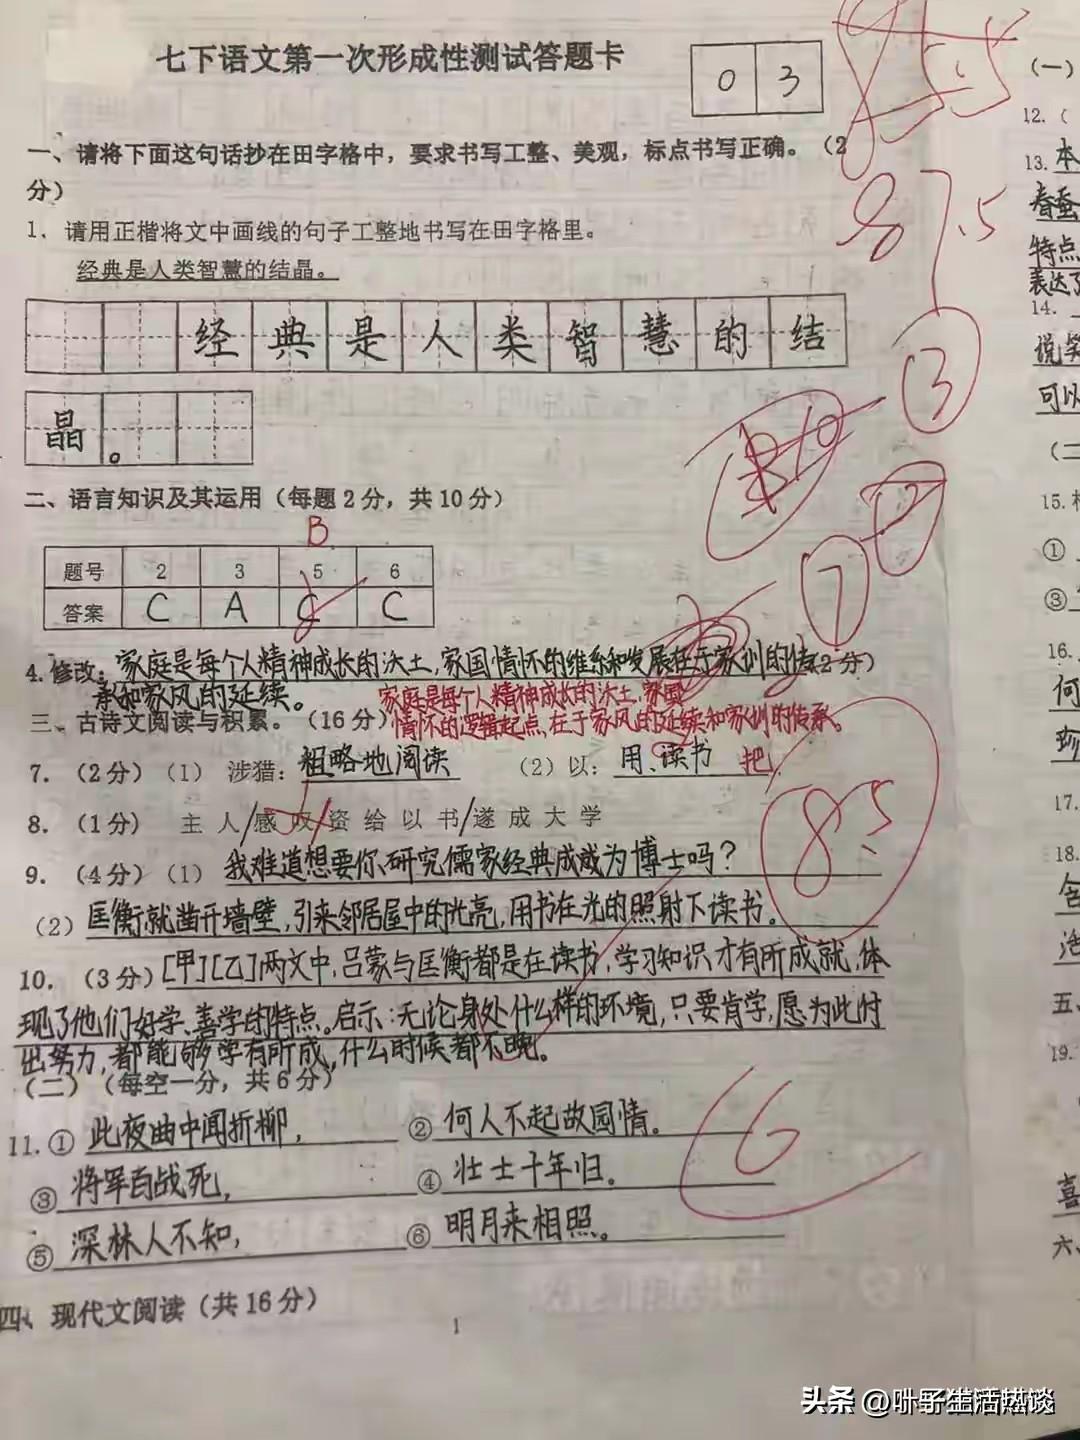 七下语文第一次形成性测试答题卡
0 3
85.5
87.5
一、请将下面这句话抄在田字格中，要求书写工整、美观，标点书写正确。（2
分）
1. 请用正楷将文中画线的句子工整地书写在田字格里。
经典是人类智慧的结晶。
经典是人类智慧的结
晶。
③
二、语言知识及其运用（每题2分，共10分）
B
题号 2 3 5 6
答案 C A C C
⑦
4.修改：家庭是每个人精神成长的沃土，家国情怀的维系和发展在于家训的传（2分）
承和家风的延续。
家庭是每个人精神成长的沃土，家国
情怀的逻辑起点，在于家风的延续和家训的传承。
三、古诗文阅读与积累。（16分）
7.（2分）（1）涉猎：粗略地阅读 （2）以：用、读书 把
8.（1分） 主人/感叹/资给以书/遂成大学
8.5
9.（4分）（1）我难道想要你研究儒家经典成为博士吗？
（2）匡衡就凿开墙壁，引来邻居屋中的光亮，用书在光的照射下读书。
10.（3分）[甲][乙]两文中，吕蒙与匡衡都是在读书，学习知识才有所成就，体
现了他们好学、善学的特点。启示：无论身处什么样的环境，只要肯学，愿为此付
出努力，都能够学有所成，什么时候都不晚。
（二）（每空一分，共6分）
11.① 此夜曲中闻折柳， ② 何人不起故园情。
③ 将军百战死， ④ 壮士十年归。
⑤ 深林人不知， ⑥ 明月来相照。
6
四、现代文阅读（共16分）
1
（一）
12.（
13. 本
春蚕
特点
表达了
14.
说笑
可以
（二
15.
①
③
16.
何
珍
17.
18.
五、
19.
喜
六、
头条 @叶子生活热谈